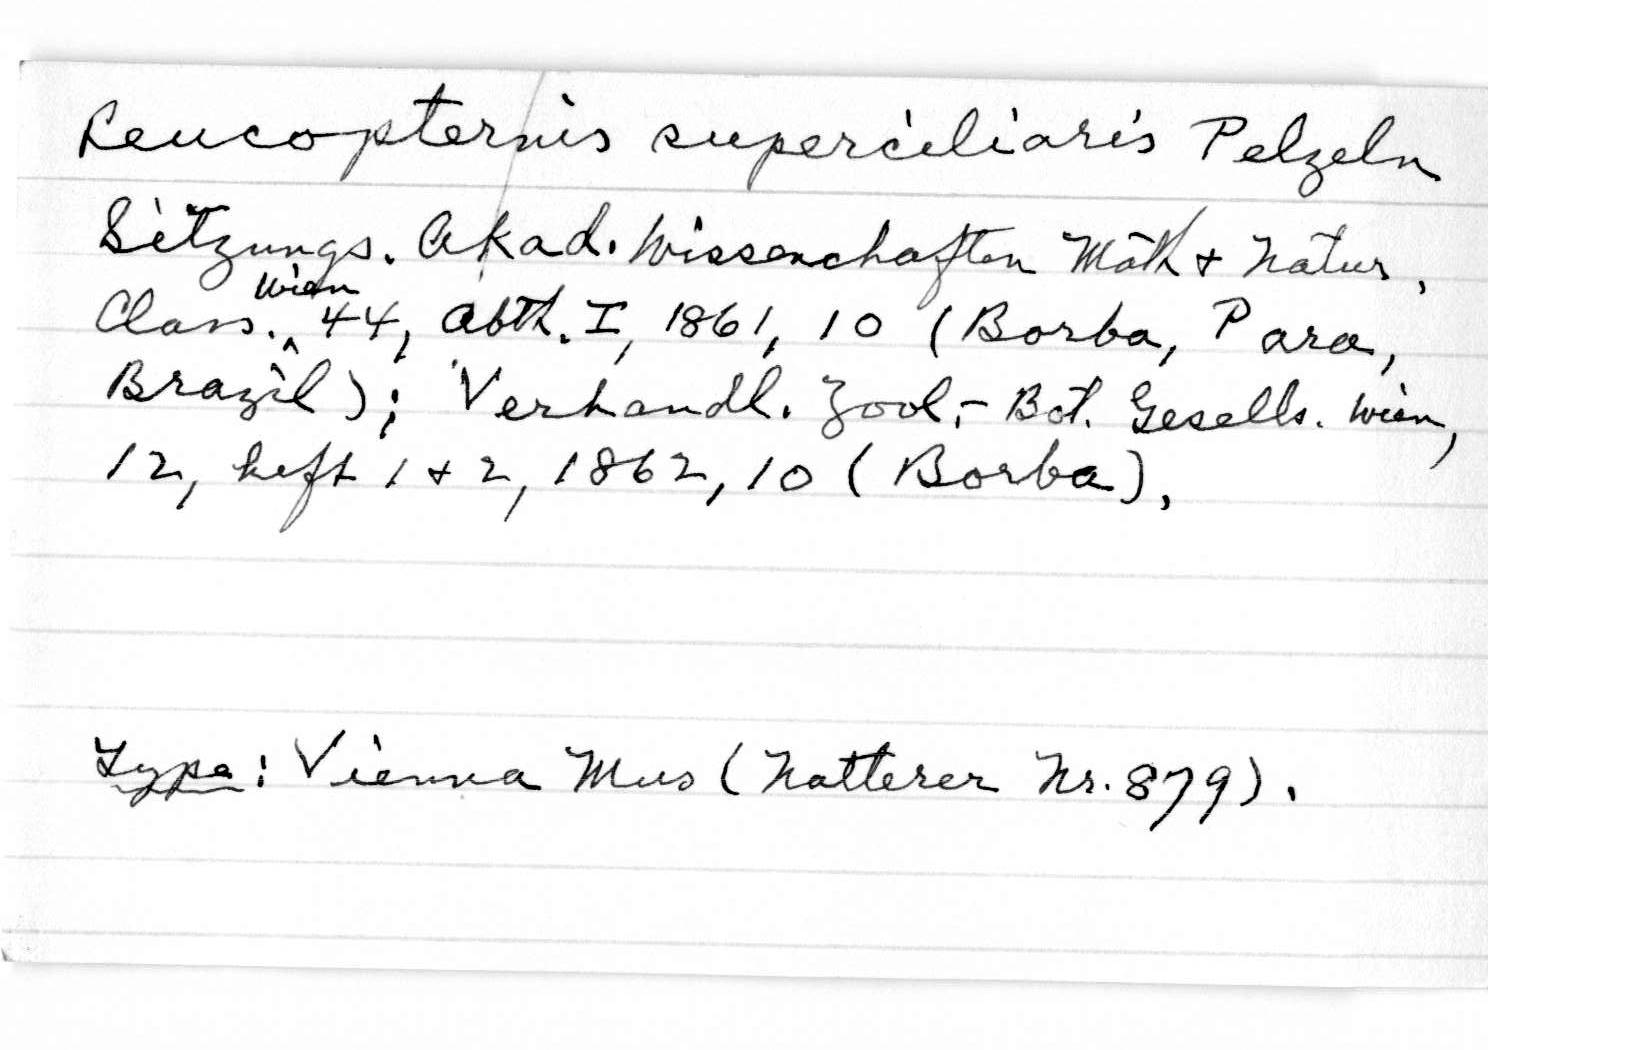 Leucopternis superciliaris Pelzeln
Sitzungs. Akad. Wissenchaften Math + Natur,
Class. Wien 44, Abth. I, 1861, 10 (Borba, Para,
Brazil); Verhandl. Zool.-Bot. Gesells. Wien,
12, heft 1 + 2, 1862, 10 (Borba),
Type: Vienna Mus (Natterer Nr. 879).